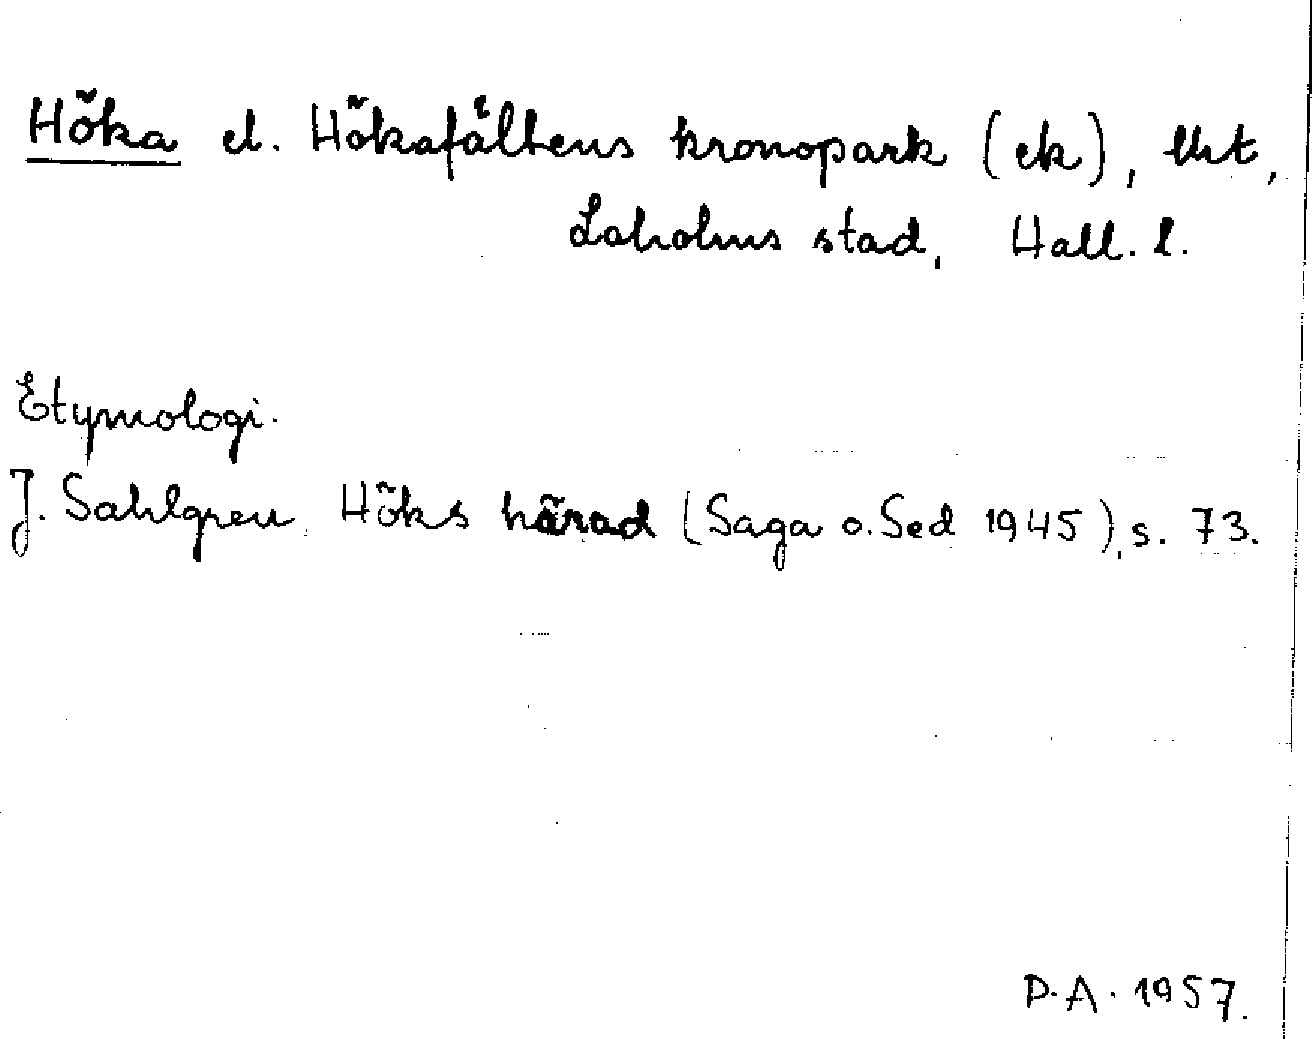 Höka el. Hökafältens kronopark (ek),
Laholms stad, Hall. l.
Etymologi.
J. Sahlgren, Höks härad (Saga o. Sed 1945), s. 73.
P.A. 1957.